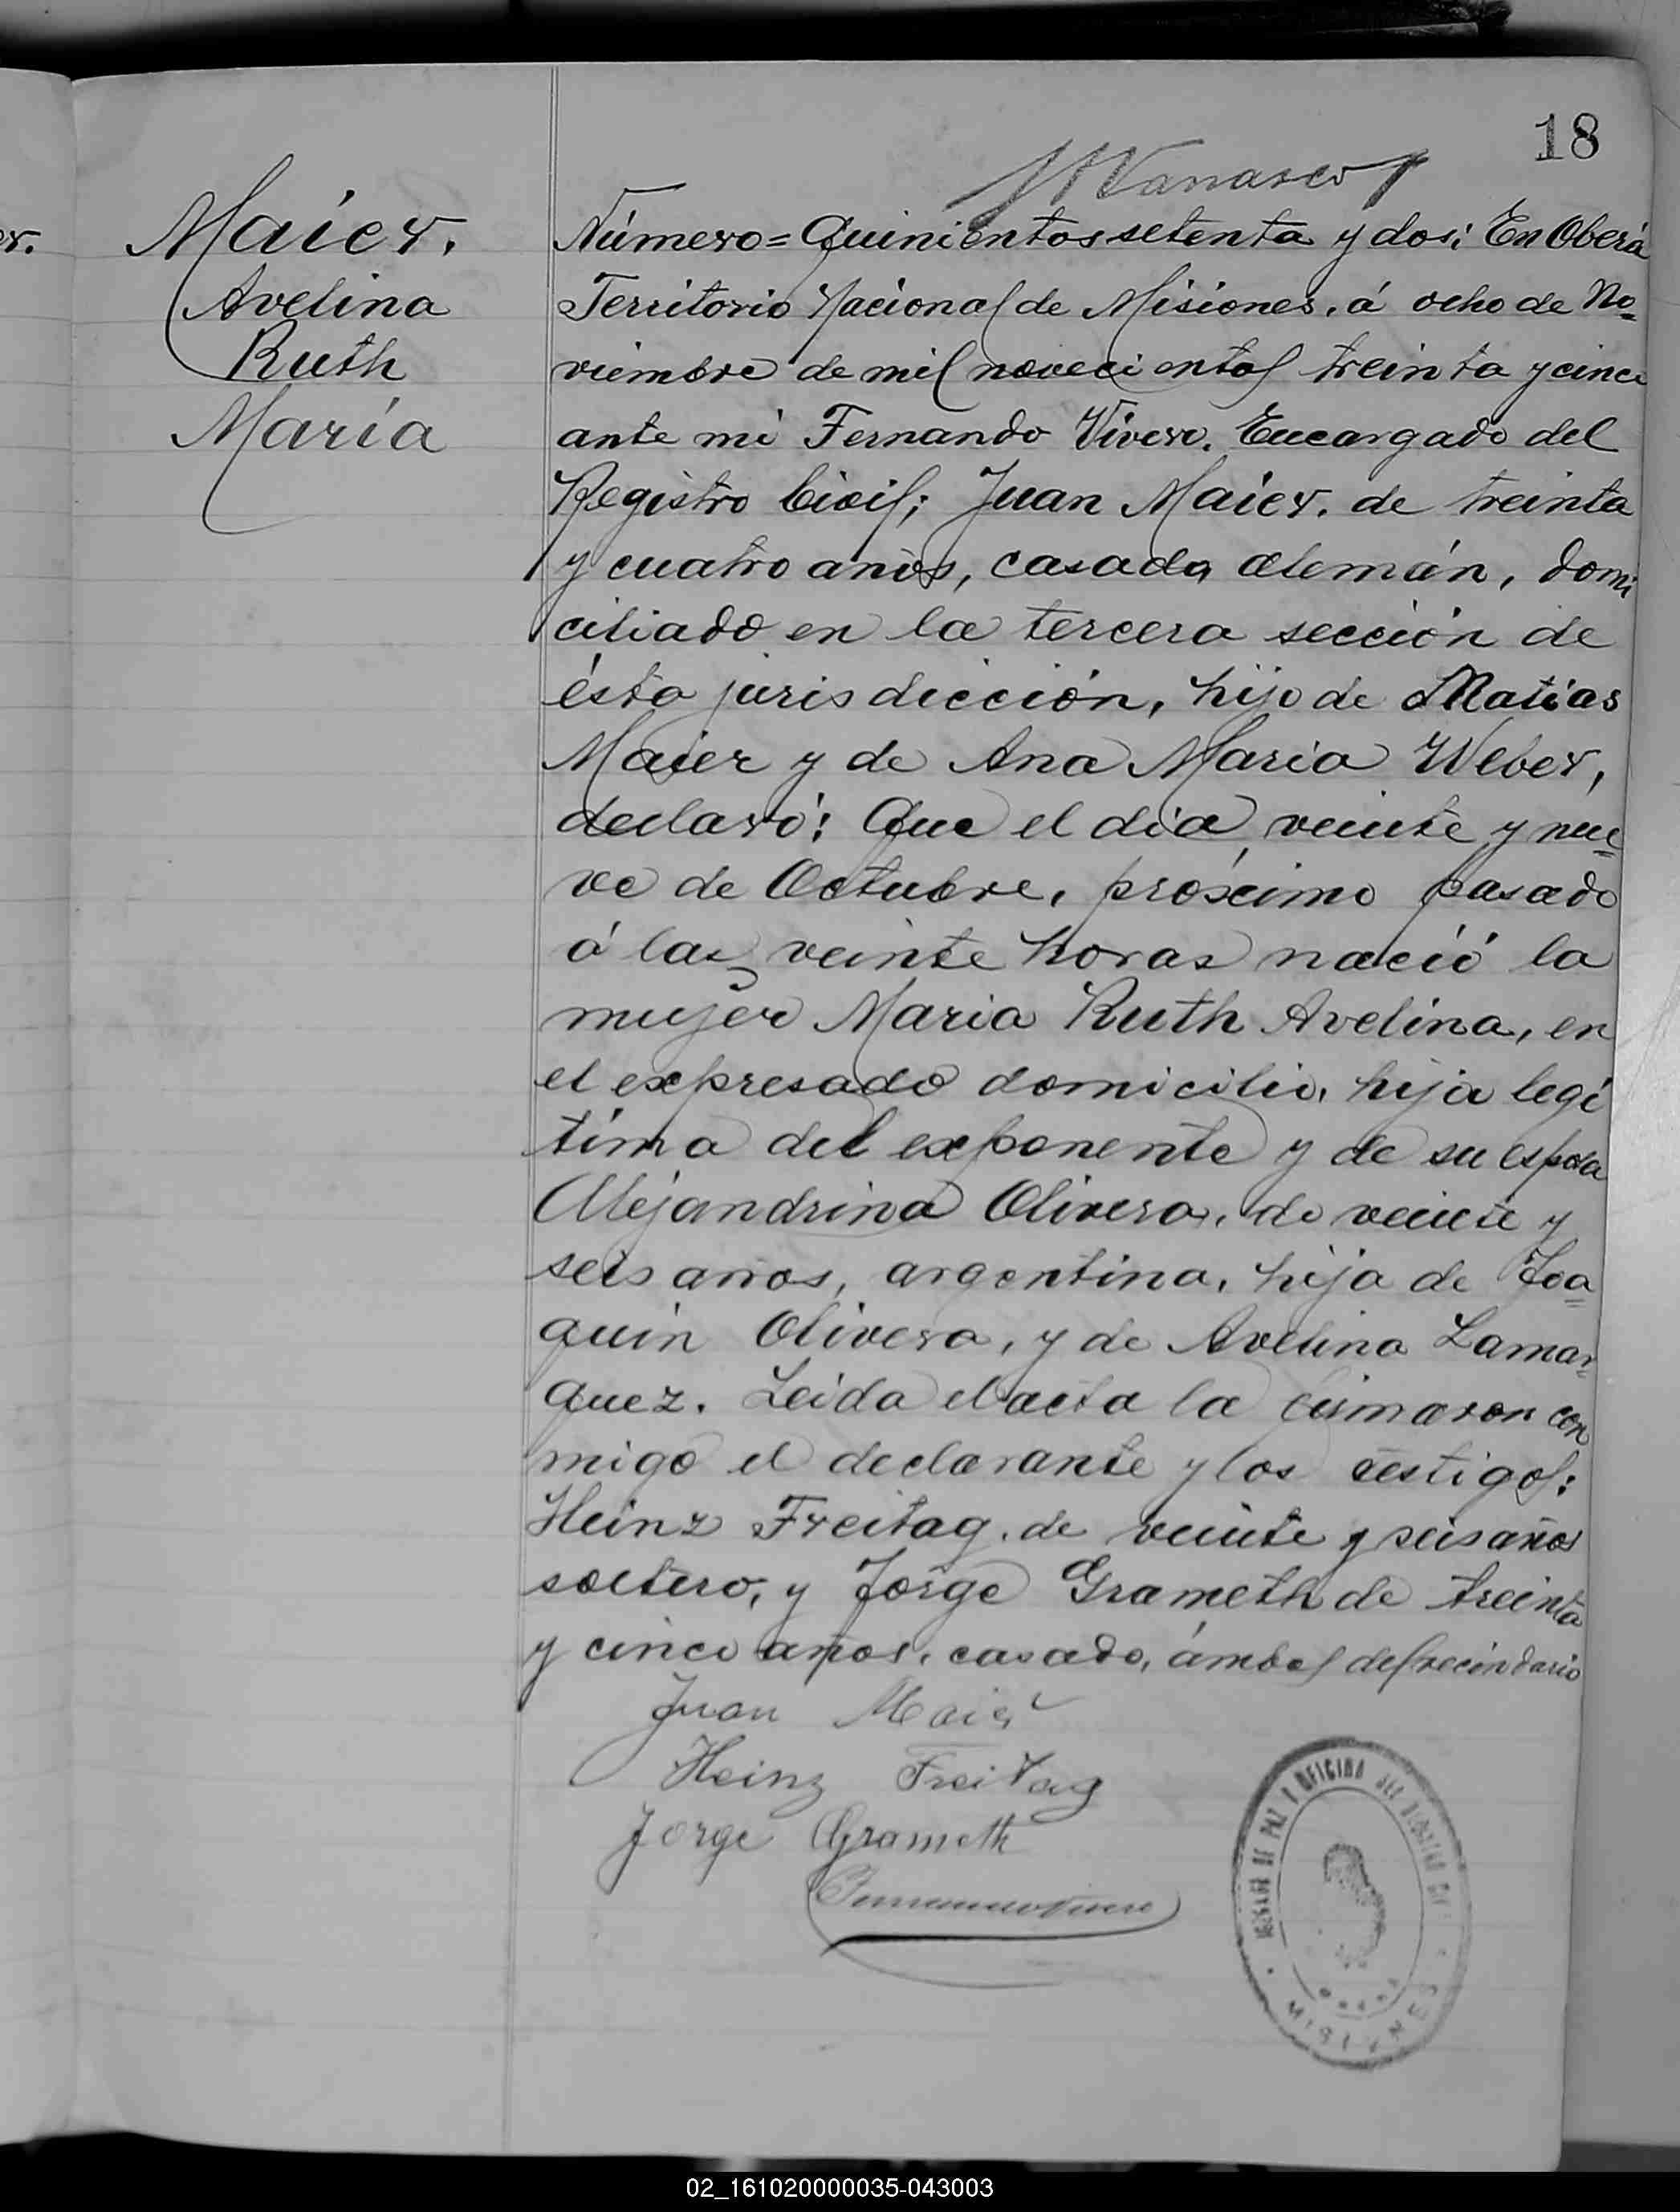 18
Maier.
Avelina
Ruth
María
Número = Quinientos setenta y dos: En Oberá
Territorio Nacional de Misiones, á ocho de No=
viembre de mil novecientos treinta y cinco
ante mi Fernando Vivero, Encargado del
Registro Civil; Juan Maier, de treinta
y cuatro años, casado, alemán, domi
ciliado en la tercera sección de
ésta jurisdicción, hijo de Matías
Maier y de Ana Maria Weber,
declaró: Que el día veinte y nue=
ve de Octubre, próximo pasado
á las veinte horas nació la
mujer Maria Ruth Avelina, en
el expresado domicilio, hija legí
tima del exponente y de su esposa
Alejandrina Olivera, de veinte y
seis años, argentina, hija de Joa=
quin Olivera, y de Avelina Lamar=
quez. Leida el acta la firmaron con
migo el declarante y los testigos:
Heinz Freitag, de veinte y seis años
soltero, y Jorge Grameth de treinta
y cinco años, casado, ámbos del vecindario
Juan Maier
Heinz Freitag
Jorge Grameth
Fernando Vivero
JUZGADO DE PAZ Y OFICINA DEL REGISTRO CIVIL
MISIONES
02_161020000035-043003